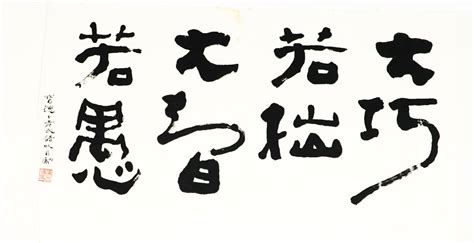 大巧
若拙
大智
若愚